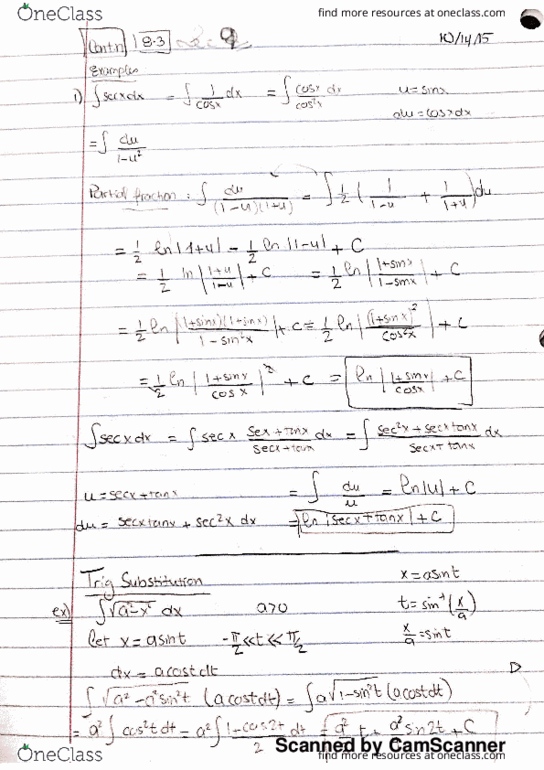 OneClass
find more resources at oneclass.com
Contn 8.3
10/14/15
Examples
1) ∫secxdx = ∫ 1/cosx dx = ∫ cosx dx/cos²x u=sinx
du=cosxdx
= ∫ du/1-u²
Partial fraction : ∫ du/(1-u)(1+u) = ∫ 1/2 ( 1/1-u + 1/1+u )du
= 1/2 ln|1+u| - 1/2 ln|1-u| + C
= 1/2 ln |1+u/1-u| + C = 1/2 ln |1+sinx/1-sinx| + C
= 1/2 ln |(1+sinx)(1+sinx)/1-sin²x| + C = 1/2 ln |(1+sinx)²/cos²x| + C
= 1/2 ln |1+sinx/cosx|² + C = ln |1+sinx/cosx| + C
∫secxdx = ∫secx secx+tanx/secx+tanx dx = ∫ sec²x+secxtanx/secx+tanx dx
u=secx+tanx = ∫ du/u = ln|u| + C
du= secxtanx + sec²x dx = ln |secx+tanx| + C
Trig Substitution x=asint
ex) ∫√a²-x² dx a>0 t=sin⁻¹(x/a)
let x=asint -π/2≪t≪π/2 x/a=sint
dx=acostdt
∫√a²-a²sin²t (acostdt) = ∫a√1-sin²t (acostdt)
= a²∫cos²tdt = a²∫ 1+cos2t/2 dt = a² t + a² sin2t + C
OneClass
Scanned by CamScanner
find more resources at oneclass.com